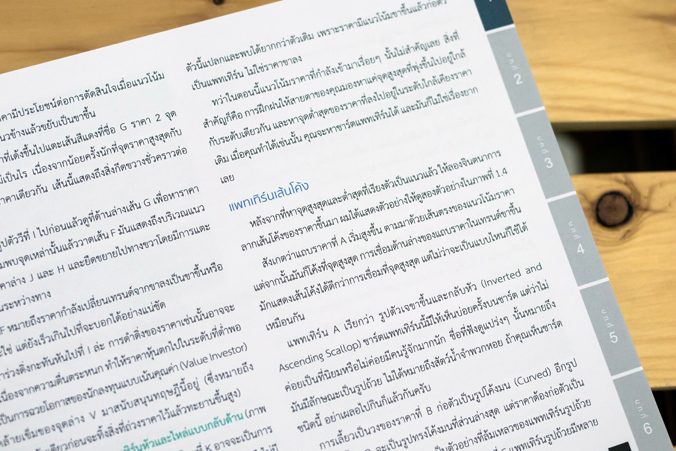 คามีประโยชน์ต่อการตัดสินใจเมื่อแนวโน้ม
นวข้างแล้วขยับเป็นขาขึ้น
าที่เด้งขึ้นไปแตะเส้นสีแดงที่ชื่อ G ราคา 2 จุด
ม่เป็นไร เนื่องจากน้อยครั้งนักที่จุดราคาสูงสุดกับ
าคาเดียวกัน เส้นนี้แสดงถึงสิ่งกีดขวางชั่วคราวต่อ
รูปตัววีที่ I ไปก่อนแล้วดูที่ด้านล่างเส้น G เพื่อหาราคา
มพบจุดเหล่านั้นแล้ววาดเส้น F มันแสดงถึงบริเวณแนว
คาล่าง J และ H และยืดขยายไปทางขวาโดยมีการแตะ
นระหว่างทาง
F หมายถึงราคากำลังเปลี่ยนเทรนด์จากขาลงเป็นขาขึ้นหรือ
ใช่ แต่ยังเร็วเกินไปที่จะบอกได้อย่างแน่ชัด
าร่วงดิ่งกะทันหันไปที่ I ล่ะ การดำดิ่งของราคาเช่นนั้นอาจจะ
เนื่องจากความตื่นตระหนก ทำให้ราคาหุ้นตกไปในระดับที่ต่ำพอ
เป็นการฉวยโอกาสของนักลงทุนแบบเน้นคุณค่า (Value Investor)
ล้ายเข็มของจุดล่าง V มาสนับสนุนทฤษฎีนี้อยู่ (ซึ่งหมายถึง
นเดียวก่อนจะทิ้งสิ่งที่ถ่วงราคาไว้แล้วทะยานขึ้นสูง)
ทิร์นหัวและไหล่แบบกลับด้าน (ภาพ
ที่ K อาจจะเป็นการ
ตัวนี้แปลกและพบได้ยากกว่าตัวเดิม เพราะราคามีแนวโน้มขาขึ้นแล้วก่อตัว
เป็นแพทเทิร์น ไม่ใช่ราคาขาลง
ทว่าในตอนนี้แนวโน้มราคาที่กำลังเข้ามาเรื่อยๆ นั้นไม่สำคัญเลย สิ่งที่
สำคัญก็คือ การฝึกฝนให้สายตาของคุณมองหาแค่จุดสูงสุดที่พุ่งขึ้นไปอยู่ใกล้
กับระดับเดียวกัน และหาจุดต่ำสุดของราคาที่ลงไปอยู่ในระดับใกล้เคียงราคา
เดิม เมื่อคุณทำได้เช่นนั้น คุณจะหาชาร์ตแพทเทิร์นได้ และมันก็ไม่ใช่เรื่องยาก
เลย
แพทเทิร์นเส้นโค้ง
หลังจากที่หาจุดสูงสุดและต่ำสุดที่เรียงตัวเป็นแนวแล้ว ให้ลองจินตนาการ
ลากเส้นโค้งของราคาขึ้นมา ผมได้แสดงตัวอย่างให้ดูสองตัวอย่างในภาพที่ 1.4
สังเกตว่าแถบราคาที่ A เริ่มสูงขึ้น ตามมาด้วยเส้นตรงของแนวโน้มราคา
แต่จากนั้นมันก็โค้งที่จุดสูงสุด การเชื่อมด้านล่างของแถบราคาในเทรนด์ขาขึ้น
มักแสดงเส้นโค้งได้ดีกว่าการเชื่อมที่จุดสูงสุด แต่ไม่ว่าจะเป็นแบบไหนก็ใช้ได้
เหมือนกัน
แพทเทิร์น A เรียกว่า รูปตัวเจขาขึ้นและกลับหัว (Inverted and
Ascending Scallop) ชาร์ตแพทเทิร์นนี้มีให้เห็นบ่อยครั้งบนชาร์ต แต่ว่าไม่
ค่อยเป็นที่นิยมหรือไม่ค่อยมีคนรู้จักมากนัก ชื่อที่ฟังดูแปร่งๆ นั้นหมายถึง
มันมีลักษณะเป็นรูปถ้วย ไม่ได้หมายถึงสัตว์น้ำจำพวกหอย ถ้าคุณเห็นชาร์ต
ชนิดนี้ อย่าเผลอไปกินก็แล้วกันครับ
การเลี้ยวเป็นวงของราคาที่ B ก่อตัวเป็นรูปโค้งมน (Curved) อีกรูป
จะเป็นรูปทรงโค้งมนที่ส่วนล่างสุด แต่ราคาต้องก่อตัวเป็น
เป็นตัวอย่างที่ล้มเหลวของแพทเทิร์นรูปถ้วย
แพทเทิร์นรูปถ้วยมีหลาย
บทที่ 2
บทที่ 3
บทที่ 4
บทที่ 5
บทที่ 6